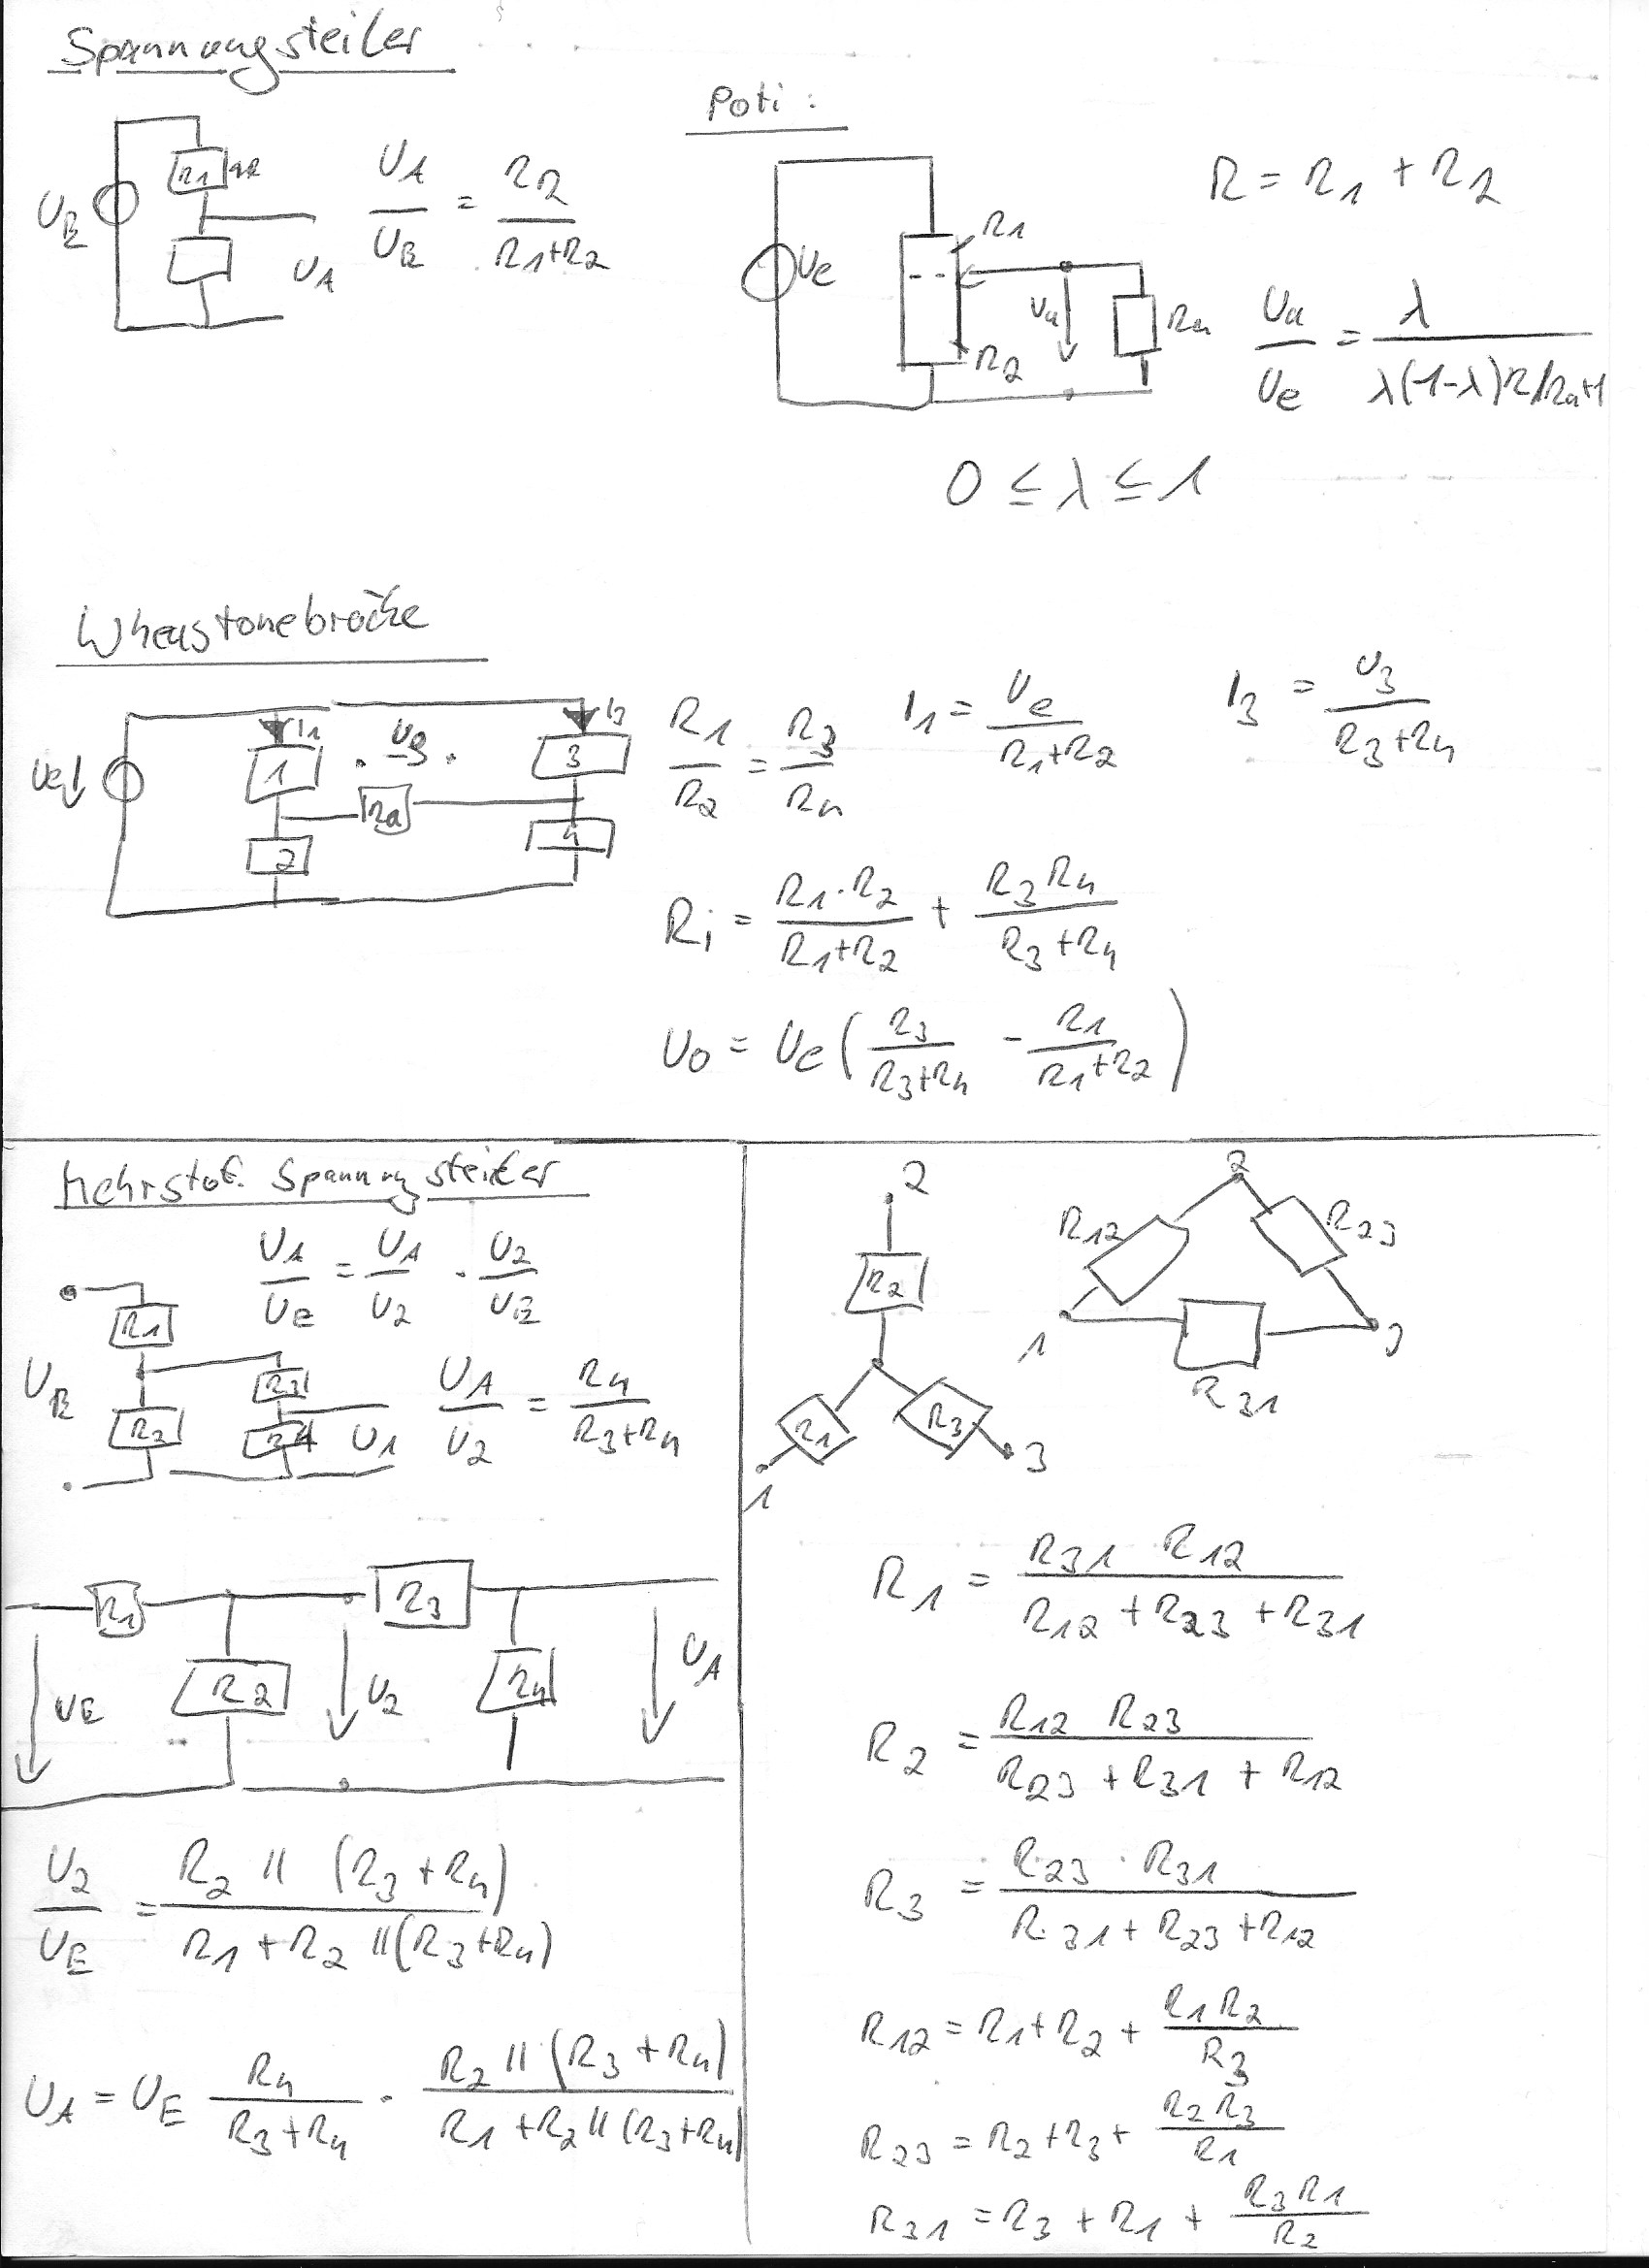 Spannungsteiler
R1
UE
UA
UA/UE = R2/(R1+R2)
Poti:
Ue
R1
R2
Ua
Ra
R = R1 + R2
Ua/Ue = λ/(λ(1-λ)R/Ra+1)
0 ≤ λ ≤ 1
Wheastonebrücke
Ue
I1
1
2
Ra
I3
3
4
R1/R2 = R3/R4
I1 = Ue/(R1+R2)
I3 = U3/(R3+R4)
Ri = R1·R2/(R1+R2) + R3R4/(R3+R4)
U0 = Ue(R3/(R3+R4) - R1/(R1+R2))
Mehrstuf. Spannungsteiler
UA/UE = UA/U2 · U2/UE
UE
R1
R2
R3
R4
UA
UA/U2 = R4/(R3+R4)
R1
R3
UE
R2
U2
R4
UA
U2/UE = R2 || (R3+R4)/(R1+R2 || (R3+R4))
UA = UE R4/(R3+R4) · R2 || (R3+R4)/(R1+R2 || (R3+R4))
2
R2
R1
R3
1
3
2
R12
R23
1
3
R31
R1 = R31 R12/(R12+R23+R31)
R2 = R12 R23/(R23+R31+R12)
R3 = R23·R31/(R31+R23+R12)
R12 = R1+R2+ R1R2/R3
R23 = R2+R3+ R2R3/R1
R31 = R3+R1+ R3R1/R2